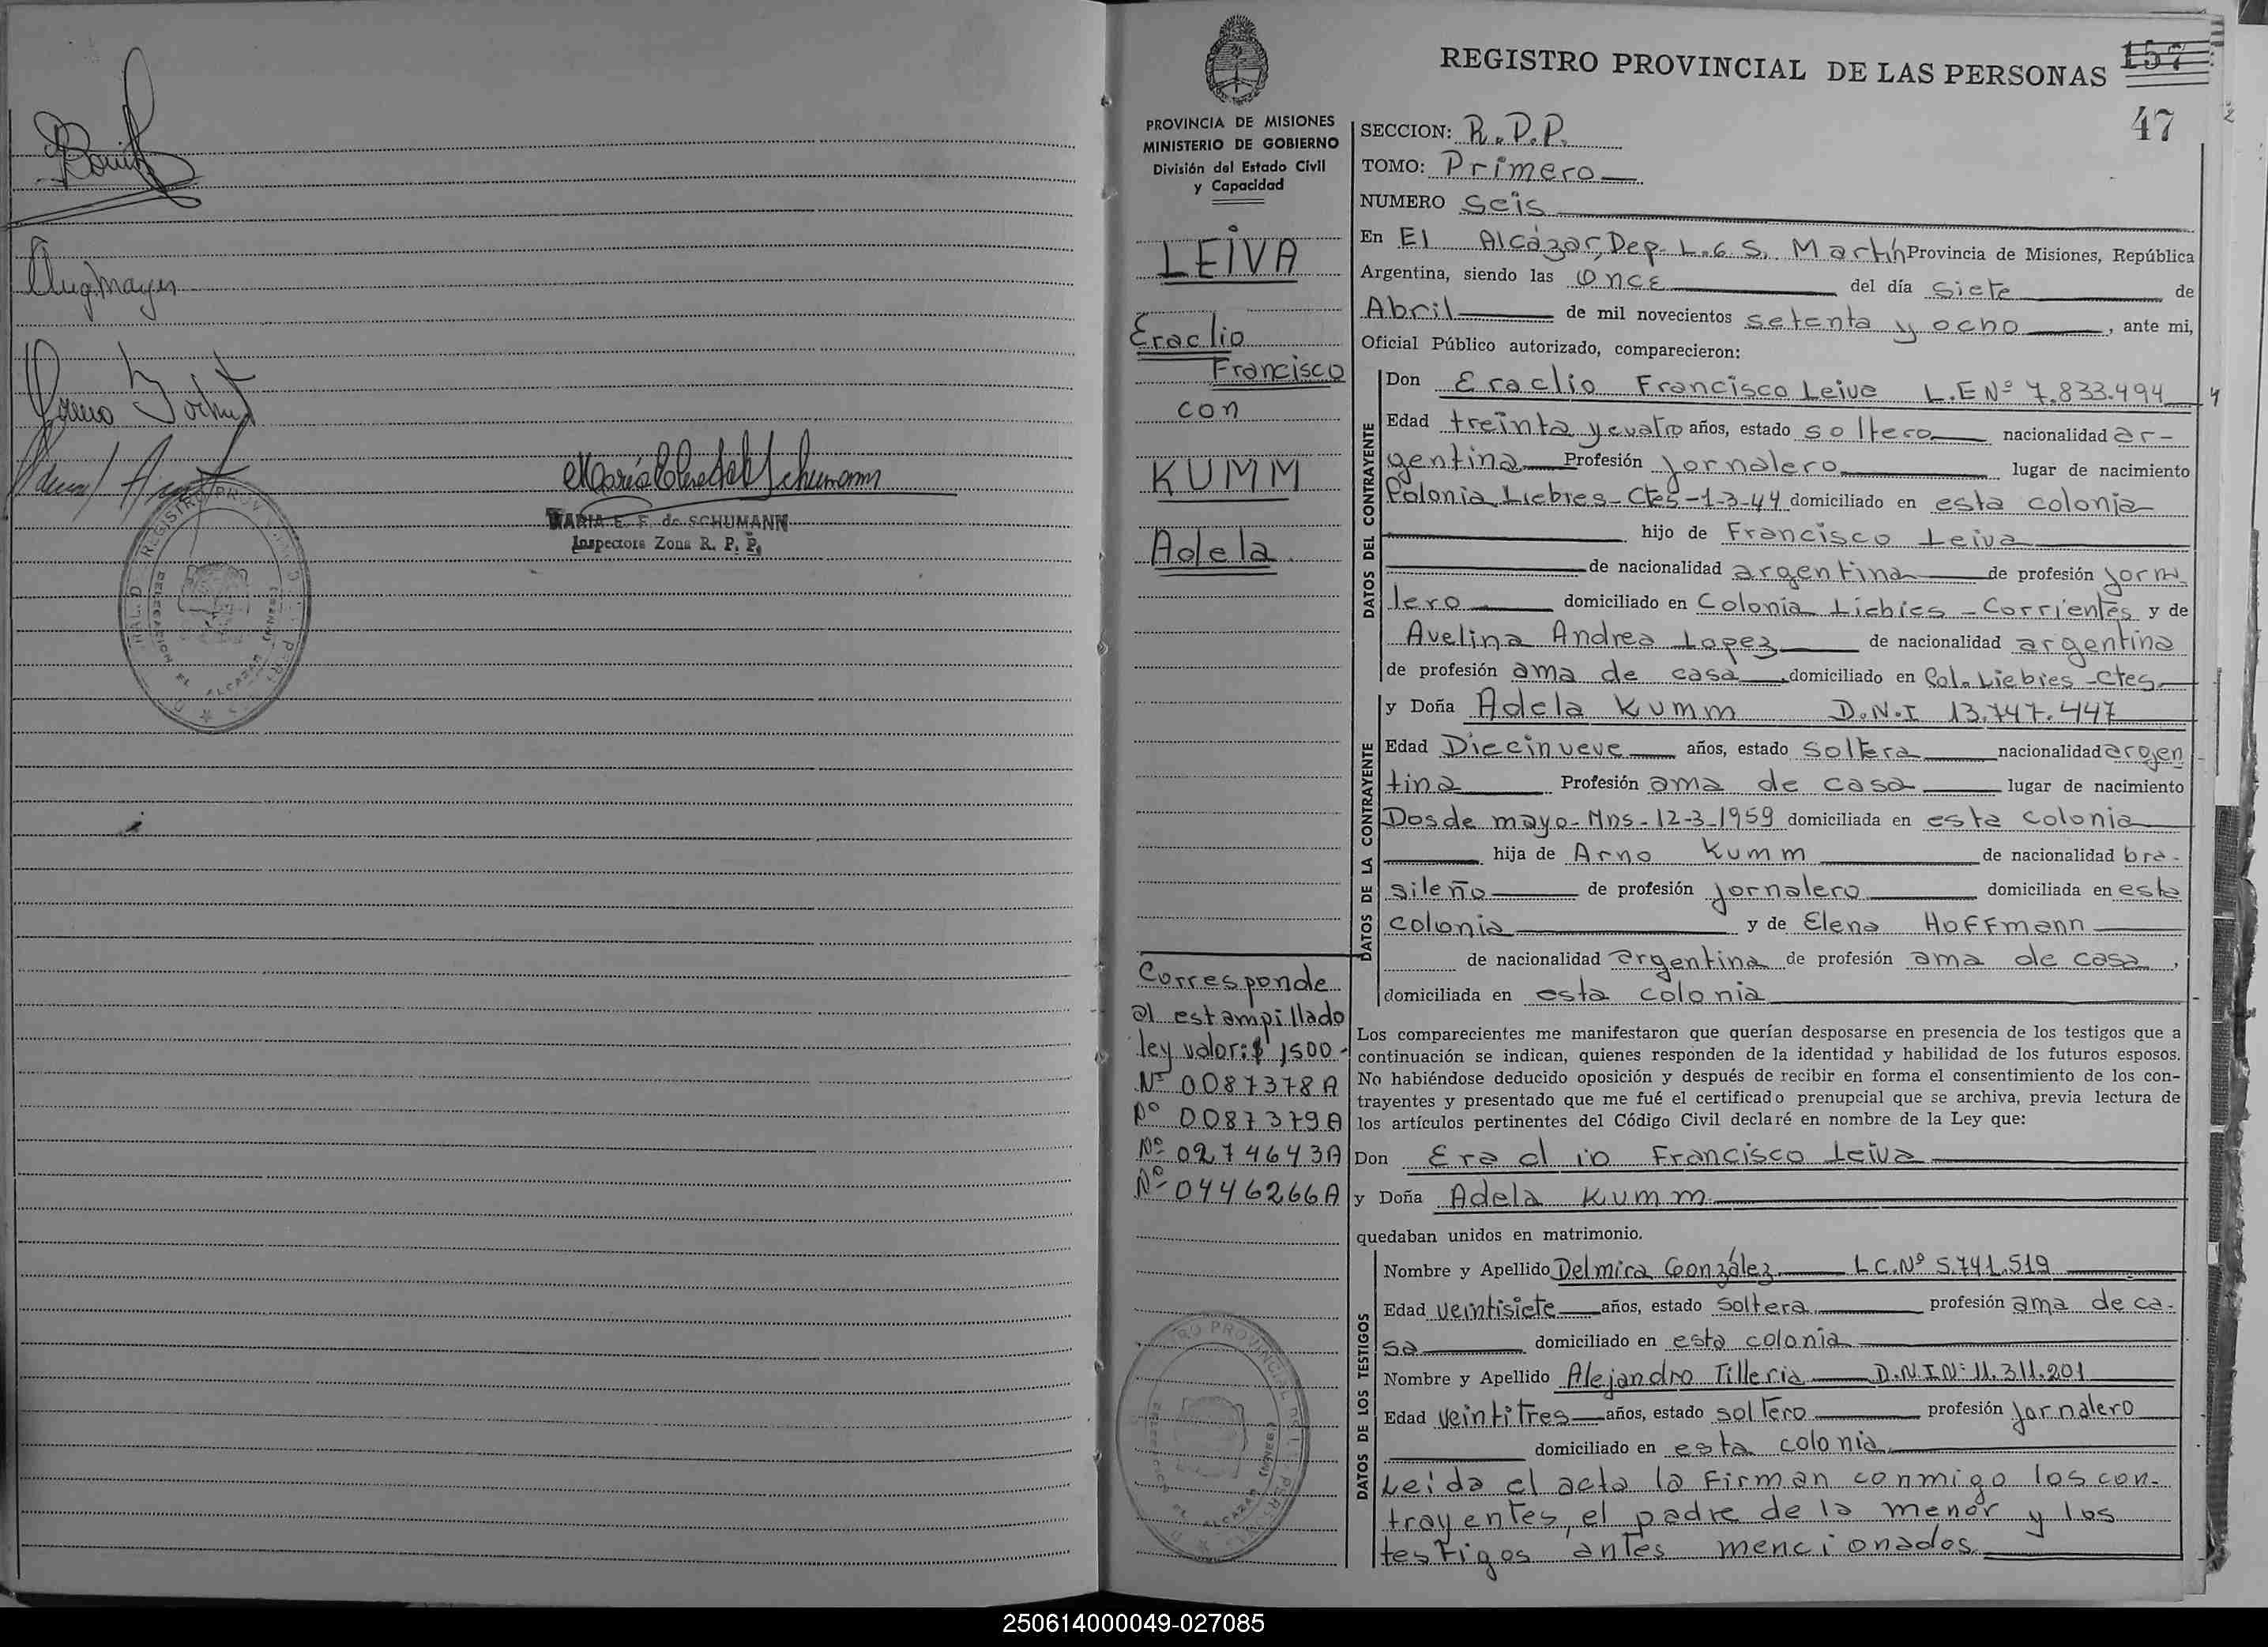 MARIA E. F. de SCHUMANN
Inspectora Zona R. P. P.
REGISTRO PROVINCIAL DE LAS PERSONAS
157
47
PROVINCIA DE MISIONES
MINISTERIO DE GOBIERNO
División del Estado Civil
y Capacidad
LEIVA
Eraclio
Francisco
con
KUMM
Adela
Corresponde
al estampillado
ley valor: $ 1500-
Nº 0087378A
Nº 0087379A
Nº 0274643A
Nº 0446266A
SECCION: R.P.P.
TOMO: Primero
NUMERO Seis
En El Alcázar, Dep. L. G. S. Martín Provincia de Misiones, República
Argentina, siendo las Once del día siete de
Abril de mil novecientos setenta y ocho, ante mi,
Oficial Público autorizado, comparecieron:
DATOS DEL CONTRAYENTE
Don Eraclio Francisco Leiva L.E Nº 7.833.494 4
Edad treinta y cuatro años, estado soltero nacionalidad ar-
gentina Profesión Jornalero lugar de nacimiento
Colonia Liebres-Ctes-1-3-44 domiciliado en esta colonia
hijo de Francisco Leiva
de nacionalidad argentina de profesión jorna
lero domiciliado en Colonia Liebies - Corrientes y de
Avelina Andrea Lopez de nacionalidad argentina
de profesión ama de casa, domiciliado en Col. Liebies-Ctes
DATOS DE LA CONTRAYENTE
y Doña Adela Kumm D.N.I 13.747.447
Edad Diecinueve años, estado soltera nacionalidad argen
tina Profesión ama de casa lugar de nacimiento
Dos de mayo-Mns-12-3-1959 domiciliada en esta colonia
hija de Arno Kumm de nacionalidad bra-
sileño de profesión jornalero domiciliada en esta
colonia y de Elena Hoffmann
de nacionalidad argentina de profesión ama de casa,
domiciliada en esta colonia
Los comparecientes me manifestaron que querían desposarse en presencia de los testigos que a
continuación se indican, quienes responden de la identidad y habilidad de los futuros esposos.
No habiéndose deducido oposición y después de recibir en forma el consentimiento de los con-
trayentes y presentado que me fué el certificado prenupcial que se archiva, previa lectura de
los artículos pertinentes del Código Civil declaré en nombre de la Ley que:
Don Eraclio Francisco Leiva
y Doña Adela Kumm
quedaban unidos en matrimonio.
DATOS DE LOS TESTIGOS
Nombre y Apellido Delmira González L C. Nº 5.741.519
Edad veintisiete años, estado soltera profesión ama de ca-
sa domiciliado en esta colonia
Nombre y Apellido Alejandro Tilleria D.N.I Nº 11.311.201
Edad veintitres años, estado soltero profesión jornalero
domiciliado en esta colonia
Leida el acta la firman conmigo los con-
trayentes, el padre de la menor y los
testigos antes mencionados
250614000049-027085